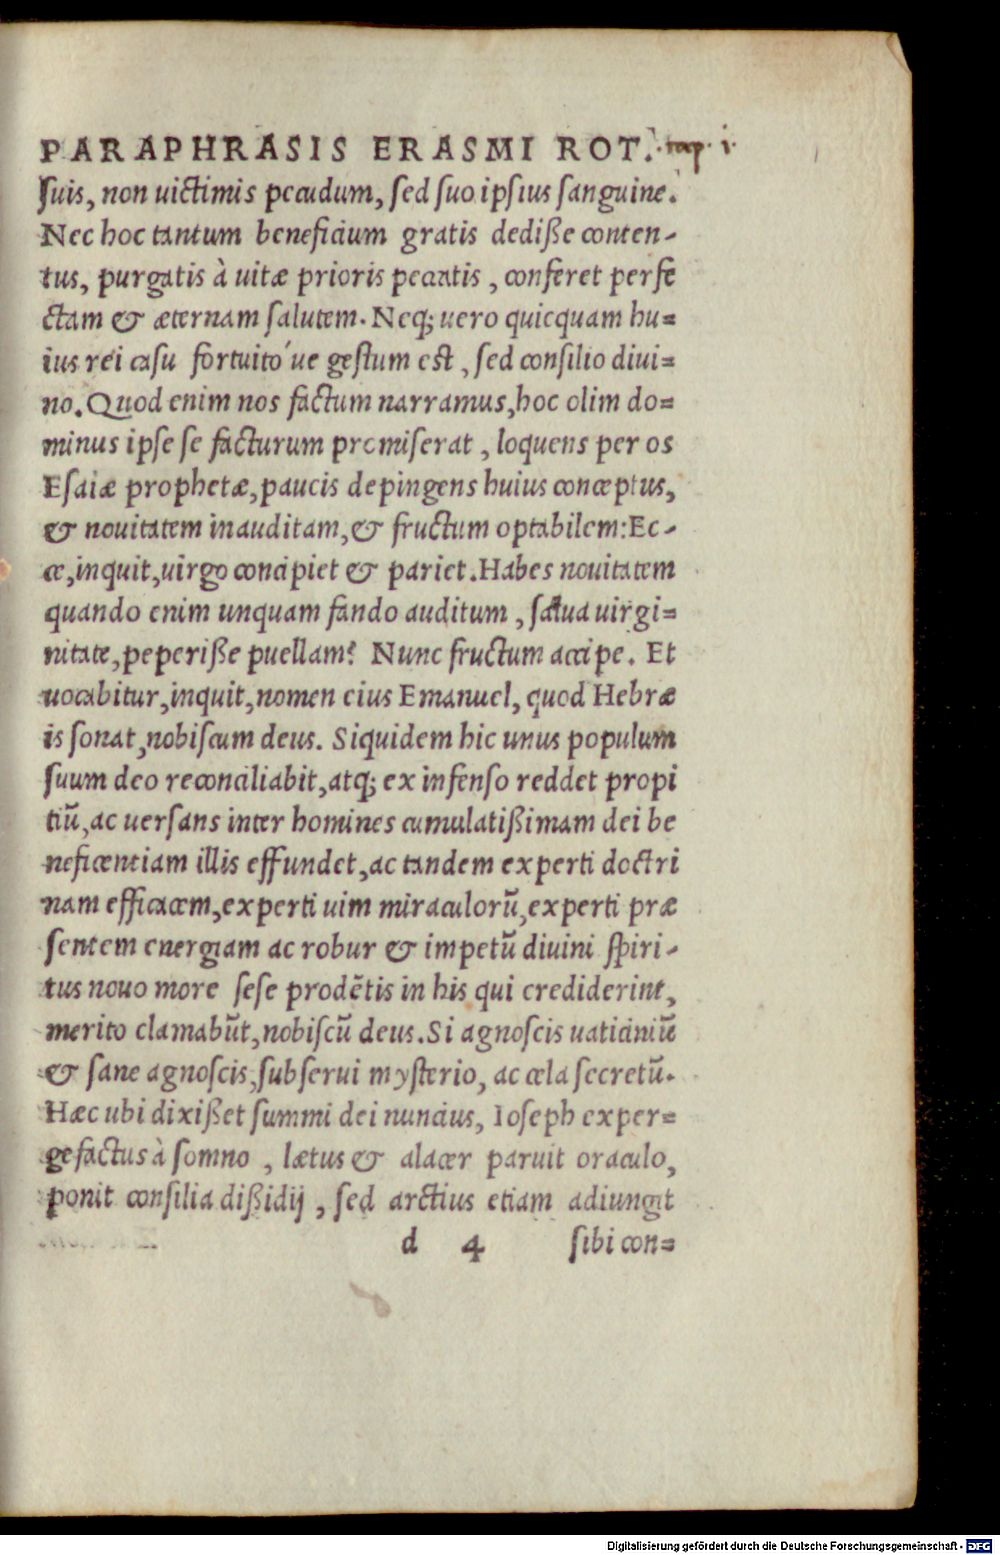 PARAPHRASIS ERASMI ROT. cap. i.
suis, non uictimis pecudum, sed suo ipsius sanguine.
Nec hoc tantum beneficium gratis dedisse conten-
tus, purgatis à uitæ prioris peccatis, conferet perfe
ctam & æternam salutem. Neq; uero quicquam hu=
ius rei casu fortuitóue gestum est, sed consilio diui=
no. Quod enim nos factum narramus, hoc olim do=
minus ipse se facturum promiserat, loquens per os
Esaiæ prophetæ, paucis depingens huius conceptus,
& nouitatem inauditam, & fructum optabilem: Ec-
ce, inquit, uirgo concipiet & pariet. Habes nouitatem
quando enim unquam fando auditum, salua uirgi=
nitate, peperisse puellam? Nunc fructum accipe. Et
uocabitur, inquit, nomen eius Emanuel, quod Hebræ
is sonat, nobiscum deus. Siquidem hic unus populum
suum deo reconciliabit, atq; ex infenso reddet propi
tiũ, ac uersans inter homines cumulatissimam dei be
neficentiam illis effundet, ac tandem experti doctri
nam efficacem, experti uim miraculorũ, experti præ
sentem energiam ac robur & impetũ diuini spiri-
tus nouo more sese prodẽtis in his qui crediderint,
merito clamabũt, nobiscũ deus. Si agnoscis uaticiniũ
& sane agnoscis, subserui mysterio, ac cela secretũ.
Hæc ubi dixisset summi dei nuncius, Ioseph exper=
gefactus à somno, lætus & alacer paruit oraculo,
ponit consilia dissidij, sed arctius etiam adiungit
d 4 sibi con=
Digitalisierung gefördert durch die Deutsche Forschungsgemeinschaft - DFG